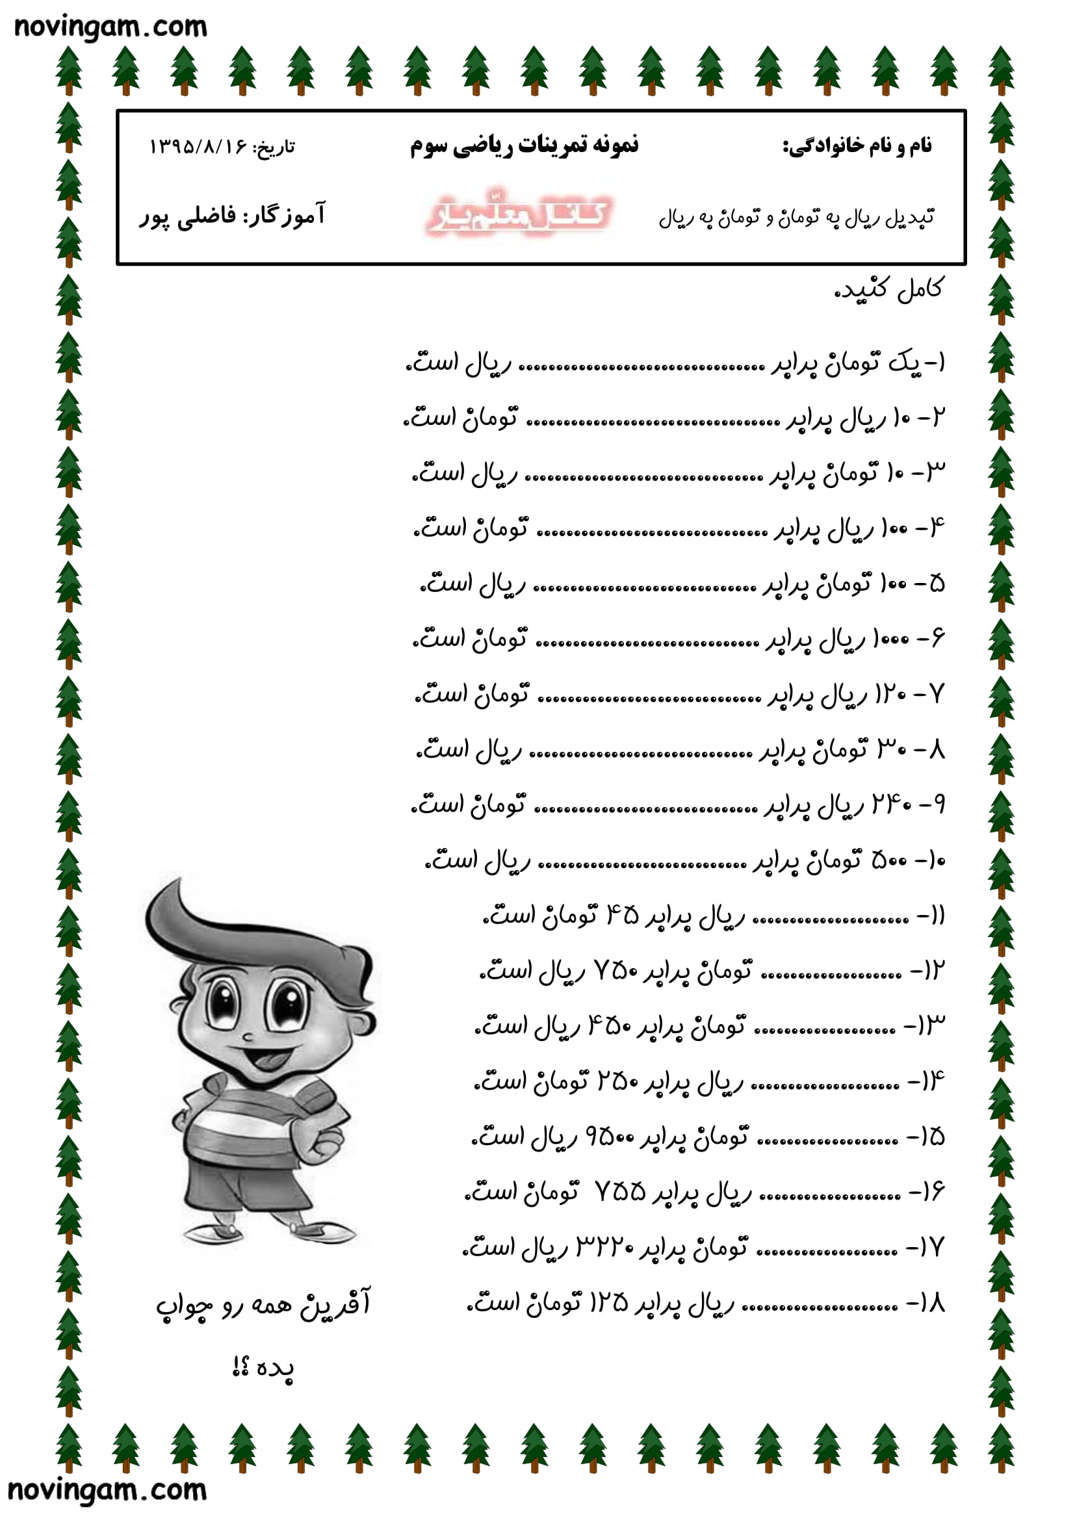 novingam.com
نام و نام خانوادگی: نمونه تمرینات ریاضی سوم تاریخ: ۱۳۹۵/۸/۱۶
تبدیل ریال به تومان و تومان به ریال کانال معلّم یار آموزگار: فاضلی پور
کامل کنید.
۱- یک تومان برابر ................................. ریال است.
۲- ۱۰ ریال برابر .................................. تومان است.
۳- ۱۰ تومان برابر ................................ ریال است.
۴- ۱۰۰ ریال برابر ............................... تومان است.
۵- ۱۰۰ تومان برابر .............................. ریال است.
۶- ۱۰۰۰ ریال برابر .............................. تومان است.
۷- ۱۲۰ ریال برابر .............................. تومان است.
۸- ۳۰ تومان برابر .............................. ریال است.
۹- ۲۴۰ ریال برابر .............................. تومان است.
۱۰- ۵۰۰ تومان برابر ............................ ریال است.
۱۱- ..................... ریال برابر ۴۵ تومان است.
۱۲- ................... تومان برابر ۷۵۰ ریال است.
۱۳- ................... تومان برابر ۴۵۰ ریال است.
۱۴- .................... ریال برابر ۲۵۰ تومان است.
۱۵- ................... تومان برابر ۹۵۰۰ ریال است.
۱۶- ................... ریال برابر ۷۵۵ تومان است.
۱۷- ................... تومان برابر ۳۲۲۰ ریال است.
۱۸- ..................... ریال برابر ۱۲۵ تومان است.
آفرین همه رو جواب
بده ؟!
novingam.com